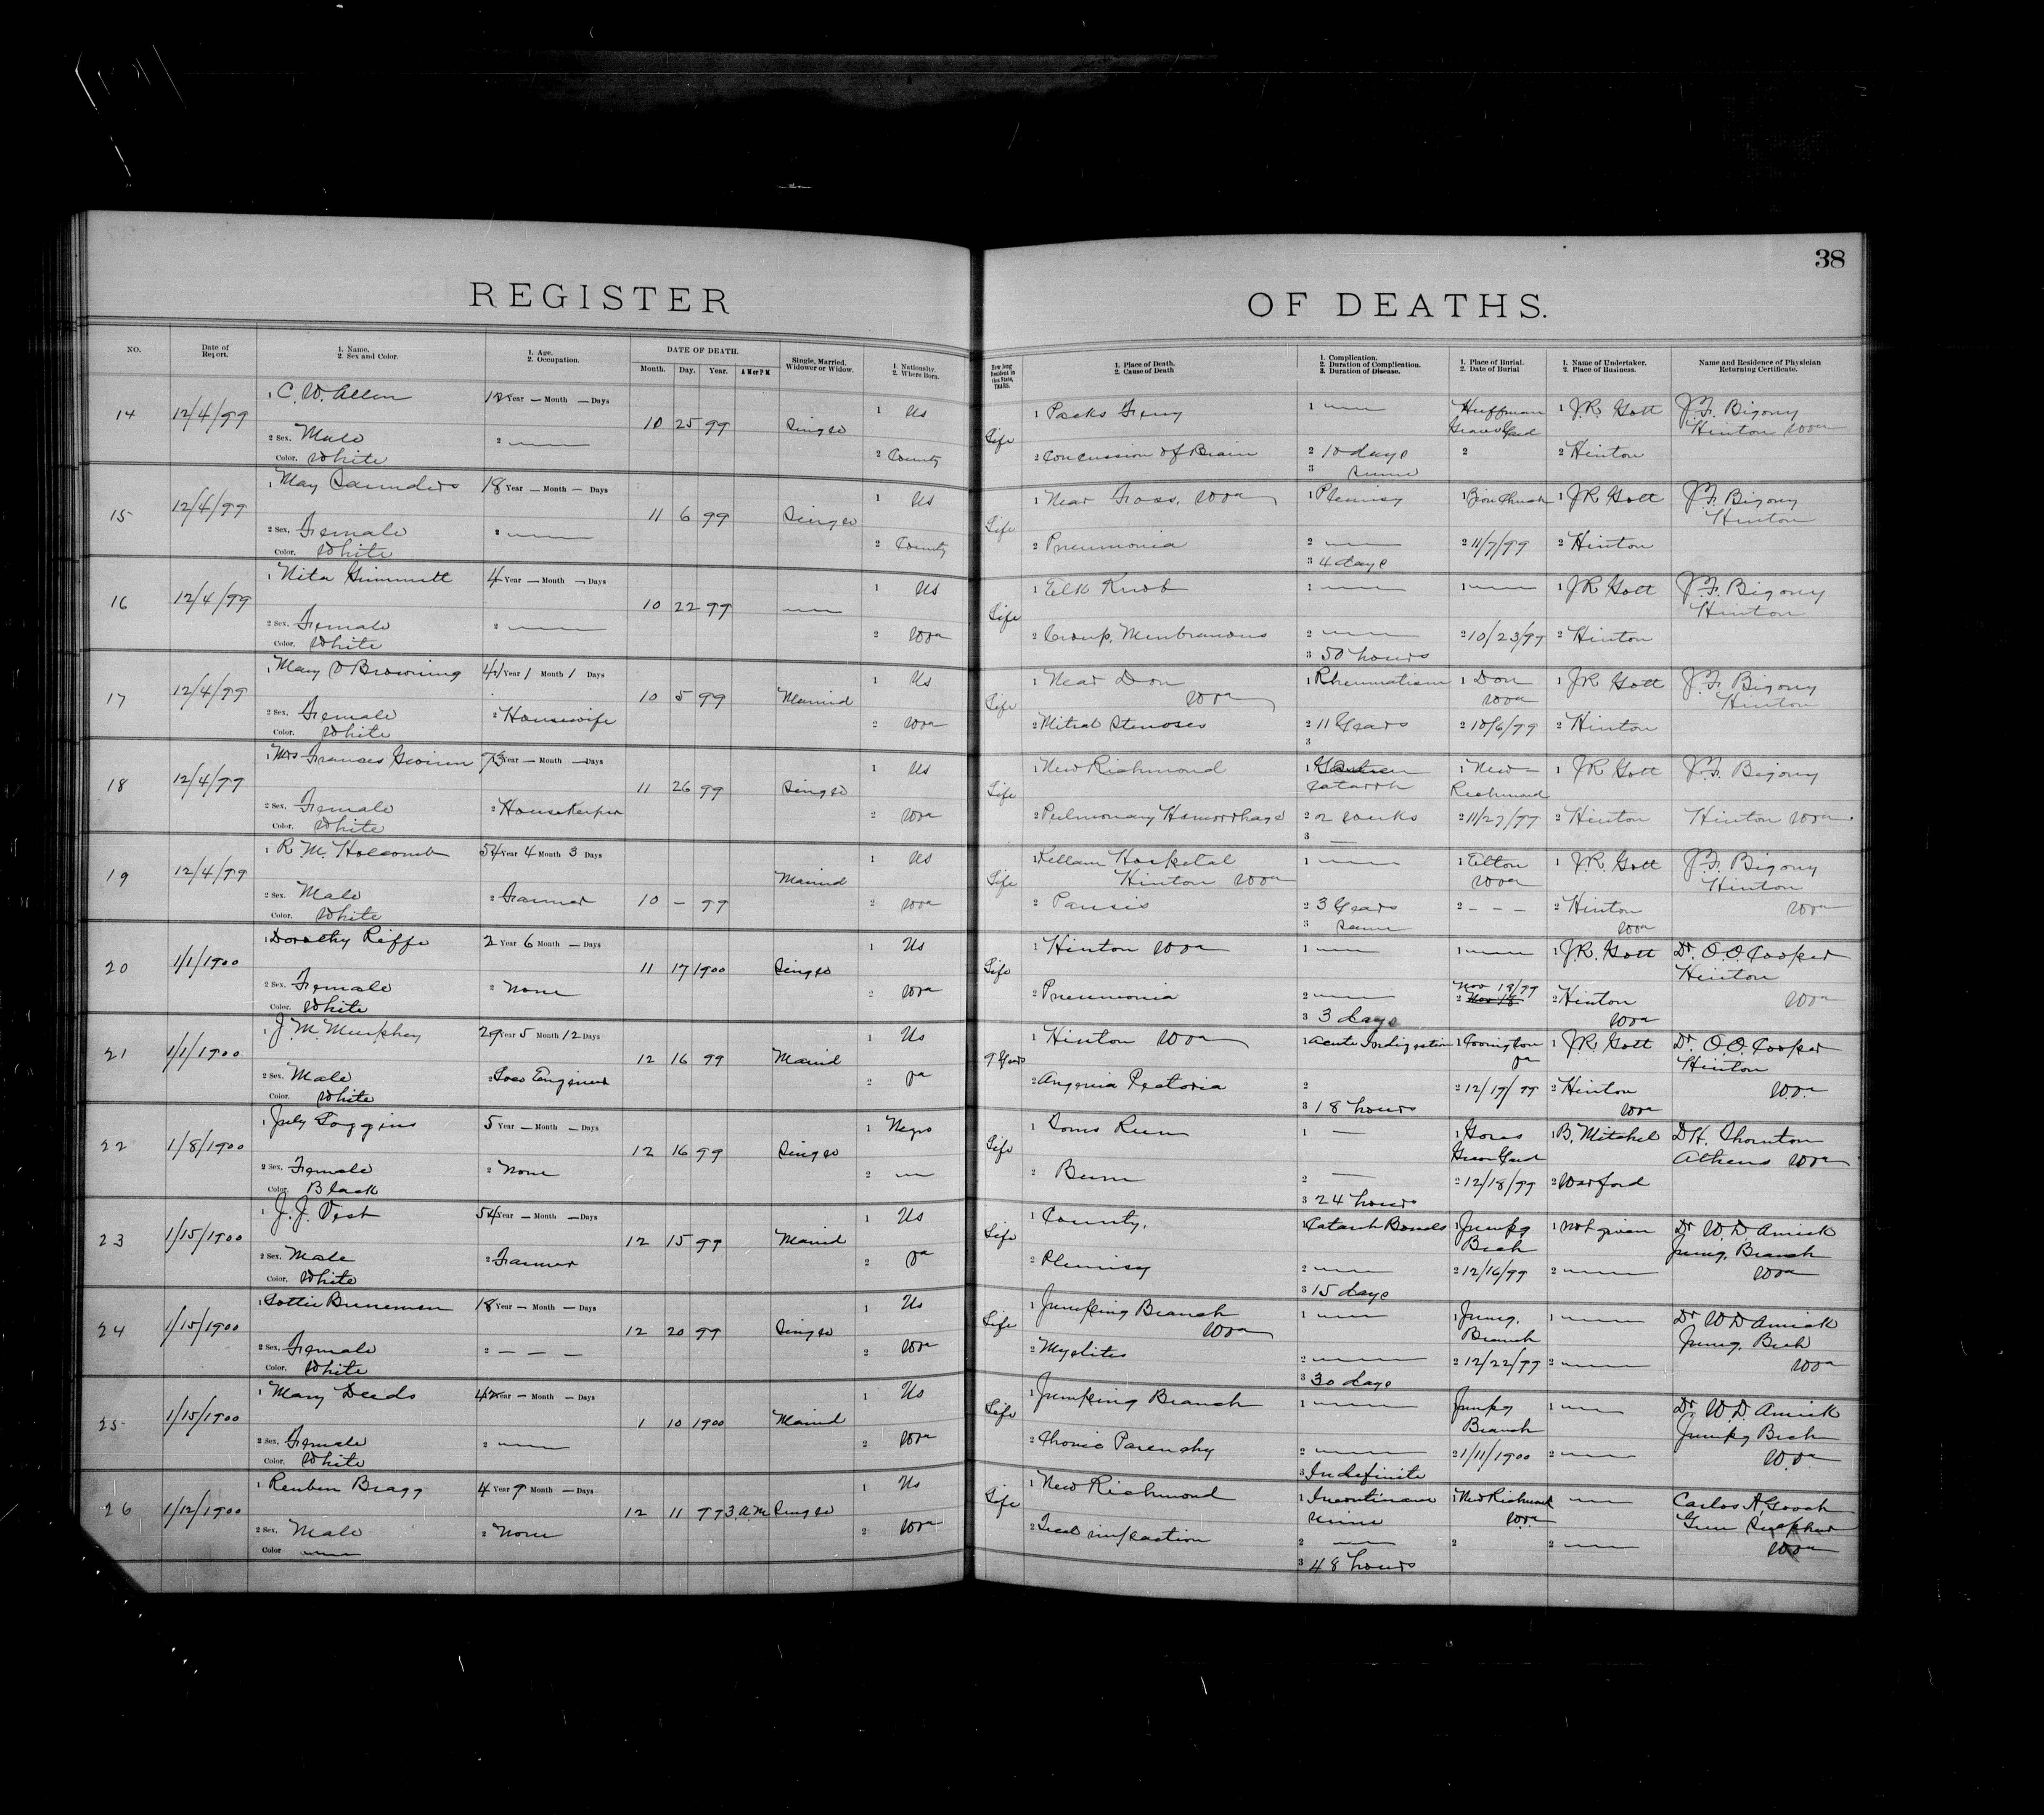 38
REGISTER OF DEATHS.
NO.
Date of Report.
1. Name.
2. Sex and Color.
1. Age.
2. Occupation.
DATE OF DEATH.
Month. Day. Year. A M or P M
Single, Married, Widower or Widow.
1. Nationality.
2. Where Born.
How long Resident in this State, YEARS.
1. Place of Death.
2. Cause of Death
1. Complication.
2. Duration of Complication.
3. Duration of Disease.
1. Place of Burial.
2. Date of Burial
1. Name of Undertaker.
2. Place of Business.
Name and Residence of Physician Returning Certificate.
14 12/4/99 1 C. W. Allen 12 Year — Month — Days 10 25 99 Single 1 Us Life 1 Packs Ferry 1 — Huffman Grave Yard 1 J. R. Gott J. F. Bigony Hinton Wva
2 Sex. Male 2 — 2 County 2 Concussion of Brain 2 10 days 2 2 Hinton
Color. White 3 same
15 12/4/99 1 May Saunders 18 Year — Month — Days 11 6 99 Single 1 Us Life 1 Near Foss, Wva 1 Pleurisy 1 Zion Church 1 J R Gott J. F. Bigony Hinton
2 Sex. Female 2 — 2 County 2 Pneumonia 2 — 2 11/7/99 2 Hinton
Color. White 3 4 days
16 12/4/99 1 Nita Gimmett 4 Year — Month — Days 10 22 99 — 1 Us Life 1 Elk Knob 1 — 1 — 1 J R Gott J. F. Bigony Hinton
2 Sex. Female 2 — 2 Wva 2 Croup, Membranous 2 — 2 10/23/99 2 Hinton
Color. White 3 50 hours
17 12/4/99 1 Mary V Browning 41 Year 1 Month 1 Days 10 5 99 Married 1 Us Life 1 Near Don Wva 1 Rheumatism 1 Don Wva 1 J R Gott J. F. Bigony Hinton
2 Sex. Female 2 Housewife 2 Wva 2 Mitral Stenoses 2 11 Years 2 10/6/99 2 Hinton
Color. White 3
18 12/4/99 1 Mrs Frances Gwinn 73 Year — Month — Days 11 26 99 Single 1 Us Life 1 New Richmond 1 Catarrh 1 New Richmond 1 J R Gott J. F. Bigony
2 Sex. Female 2 HouseKeeper 2 Wva 2 Pulmonary Hemorrhage 2 2 weeks 2 11/27/99 2 Hinton Hinton Wva
Color. White 3 —
19 12/4/99 1 R. M. Holcomb 54 Year 4 Month 3 Days 10 — 99 Married 1 Us Life 1 Kellam Hospital Hinton Wva 1 — 1 Elton Wva 1 J. R. Gott J. F. Bigony Hinton Wva
2 Sex. Male 2 Farmer 2 Wva 2 Parisis 2 3 Years 2 - - - 2 Hinton Wva
Color. White 3 same
20 1/1/1900 1 Dorothy Riffe 2 Year 6 Month — Days 11 17 1900 Single 1 Us Life 1 Hinton Wva 1 — 1 — 1 J. R. Gott Dr. O. O. Cooper Hinton Wva
2 Sex. Female 2 None 2 Wva 2 Pneumonia 2 — Nov 19/99 2 Nov 18 2 Hinton Wva
Color. White 3 3 days
21 1/1/1900 1 J. M. Murphey 29 Year 5 Month 12 Days 12 16 99 Married 1 Us 9 Years 1 Hinton Wva 1 Acute Indigestion 1 Covington Va 1 J. R. Gott Dr. O. O. Cooper Hinton Wva
2 Sex. Male 2 Loco Engineer 2 Va 2 Angenia Pectoria 2 2 12/17/99 2 Hinton Wva
Color. White 3 18 hours
22 1/8/1900 1 July Scoggins 5 Year — Month — Days 12 16 99 Single 1 Negro Life 1 Toms Run 1 — 1 Gores Grave Yard 1 B. Mitchel D H. Thornton Athens Wva
2 Sex. Female 2 None 2 — 2 Burn 2 — 2 12/18/99 2 Warford
Color. Black 3 24 hours
23 1/15/1900 1 J. J. Vest 54 Year — Month — Days 12 15 99 Married 1 Us Life 1 County, 1 Catarrh Bowels 1 Jumpg Bch 1 not given Dr W. D Amick Jump, Branch Wva
2 Sex. Male 2 Farmer 2 Va 2 Pleurisy 2 — 2 12/16/99 2 —
Color. White 3 15 days
24 1/15/1900 1 Lottie Bruneman 18 Year — Month — Days 12 20 99 Single 1 Us Life 1 Jumping Branch Wva 1 — 1 Jump. Branch 1 — Dr W D Amick Jump, Bch Wva
2 Sex. Female 2 - - - 2 Wva 2 Myelites 2 — 2 12/22/99 2 —
Color. White 3 30 days
25 1/15/1900 1 Mary Deeds 42 Year — Month — Days 1 10 1900 Married 1 Us Life 1 Jumping Branch 1 — Jumpg Branch 1 — Dr W. D. Amick Jumpg Bch W.va
2 Sex. Female 2 — 2 Wva 2 Chonic 2 — 2 1/11/1900 2 —
Color. White 3 Indefinite
26 1/12/1900 1 Reuben Bragg 4 Year 9 Month — Days 12 11 99 3. A. M Single 1 Us Life 1 New Richmond 1 Incontinence Urine 1 New Richmond Wva — Carlos A Gooch Green Sulphur Wva
2 Sex. Male 2 None 2 Wva 2 Fecal impaction 2 — 2 2 —
Color — 3 48 hours